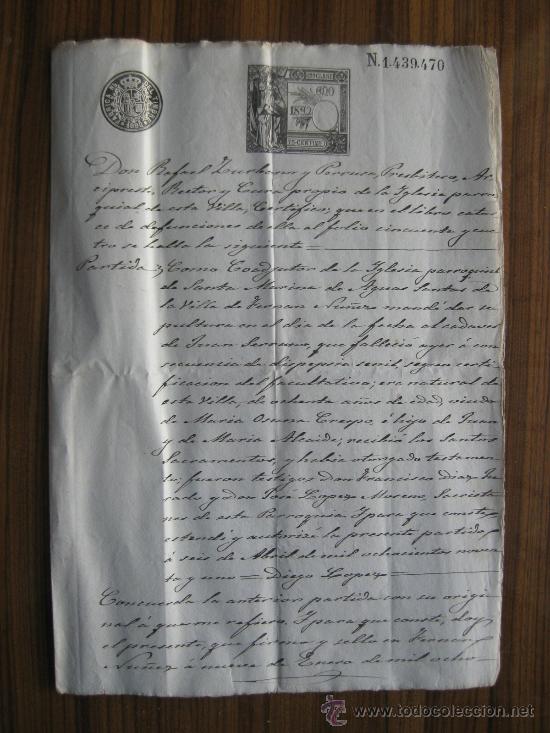 N.1.439.470
12ª CLASE
1892
75 CENTIMOS
Don Rafael y Porrura, Presbitero, Ar-
cipreste, Rector y Cura propio de la Yglesia parro-
quial de esta Villa, Certifico; que en el libro cator-
ce de defunciones de ella al folio cincuenta y cua-
tro se halla la siguiente
Partida Como Coadjutor de la Yglesia parroquial
de Santa Marina de Aguas Santas de
la Villa de Fernan Nuñez mandé dar se-
pultura en el dia de la fecha al cadaver
de Juan Serrano, que falleció ayer á con-
secuencia de dispepsia senil, segun certi-
ficacion del facultativo; era natural de
esta Villa, de ochenta años de edad, viudo
de Maria Osuna Crespo, é hijo de Juan
y de Maria Alcaide; recibió los Santos
Sacramentos, y habia otorgado testamen-
to; fueron testigos Don Francisco Diaz Ju-
rado y Don José Lopez Moreno, Sacrista-
nes de esta Parroquia. Y para que conste,
estendí y autorizé la presente partida,
á seis de Abril de mil ochocientos noven-
ta y uno = Diego Lopez
Concuerda la anterior partida con su origi-
nal á que me refiero. Y para que conste, doy
el presente, que firmo y sello en Fernan
Nuñez á nueve de Enero de mil ocho-
todocoleccion
www.todocoleccion.net